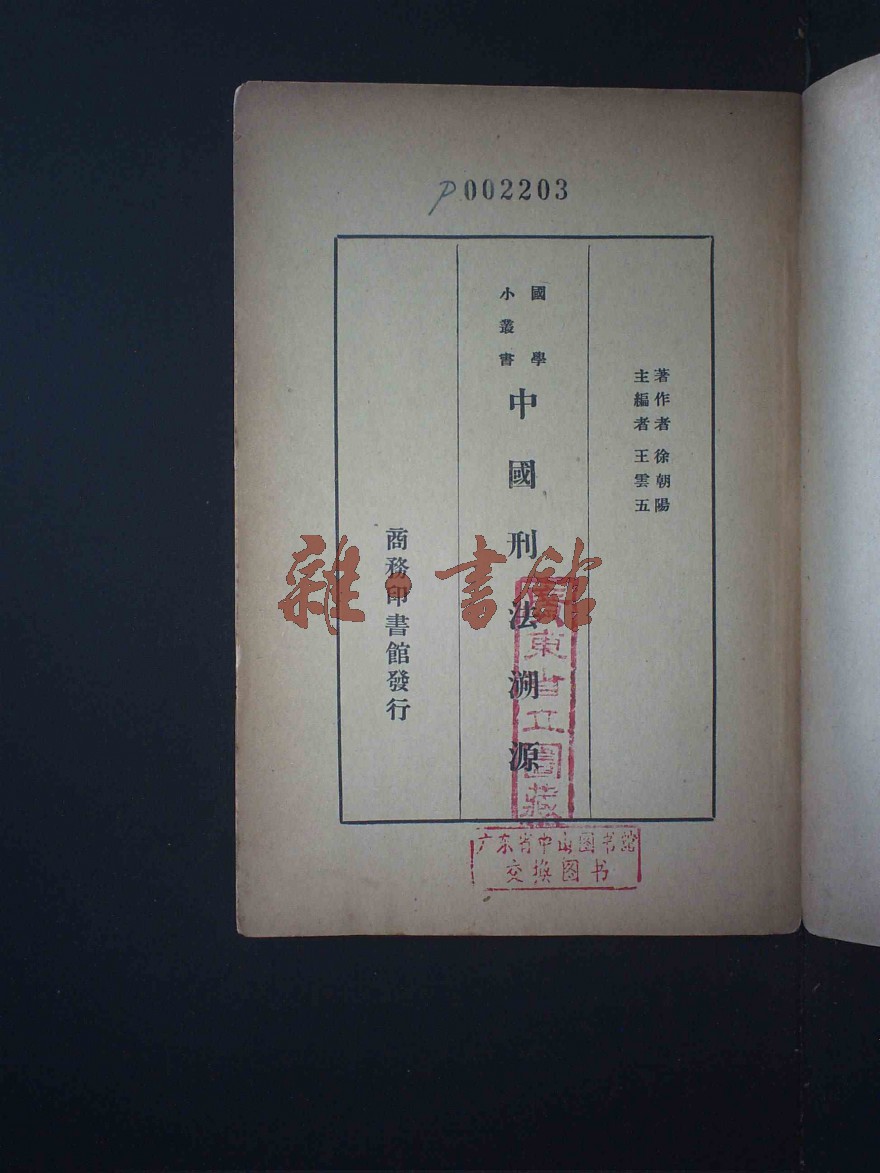 P002203
著作者 徐朝陽
主編者 王雲五
國學
小叢書
中國刑法溯源
商務印書館發行
雜·書館
廣東省立圖藏
广东省中山图书馆
交换图书